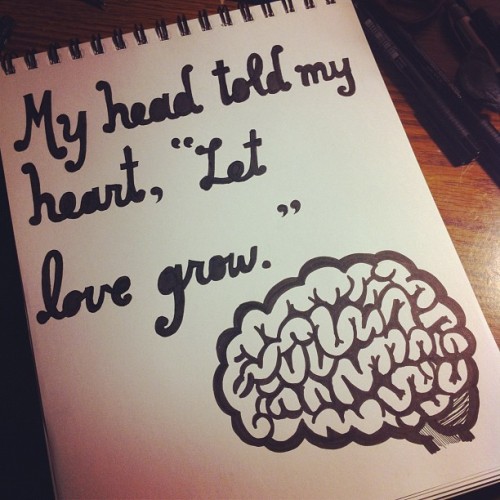 My head told my
heart, "Let
love grow."